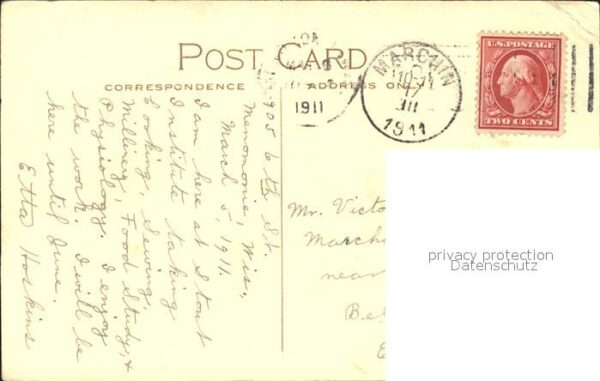 POST CARD
CORRESPONDENCE
ADDRESS ONLY
1911
MARCHIN
10-11
17
III
1911
U.S. POSTAGE
TWO CENTS
905 6th St.
Menomonie, Wis,
March 5, 1911.
I am here at Stout
Institute taking
Cooking, Sewing,
Millinery, Food Study, &
Physiology. I enjoy
the work. I will be
here until June.
Etta Hoskins
Mr. Victo
March
near
Be
privacy protection
Datenschutz